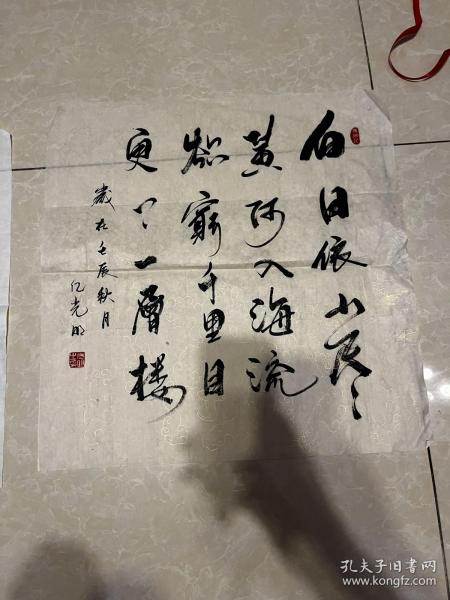 白日依山尽
黄河入海流
欲窮千里目
更上一層楼
歲在壬辰秋月
光明
孔夫子旧书网
www.kongfz.com